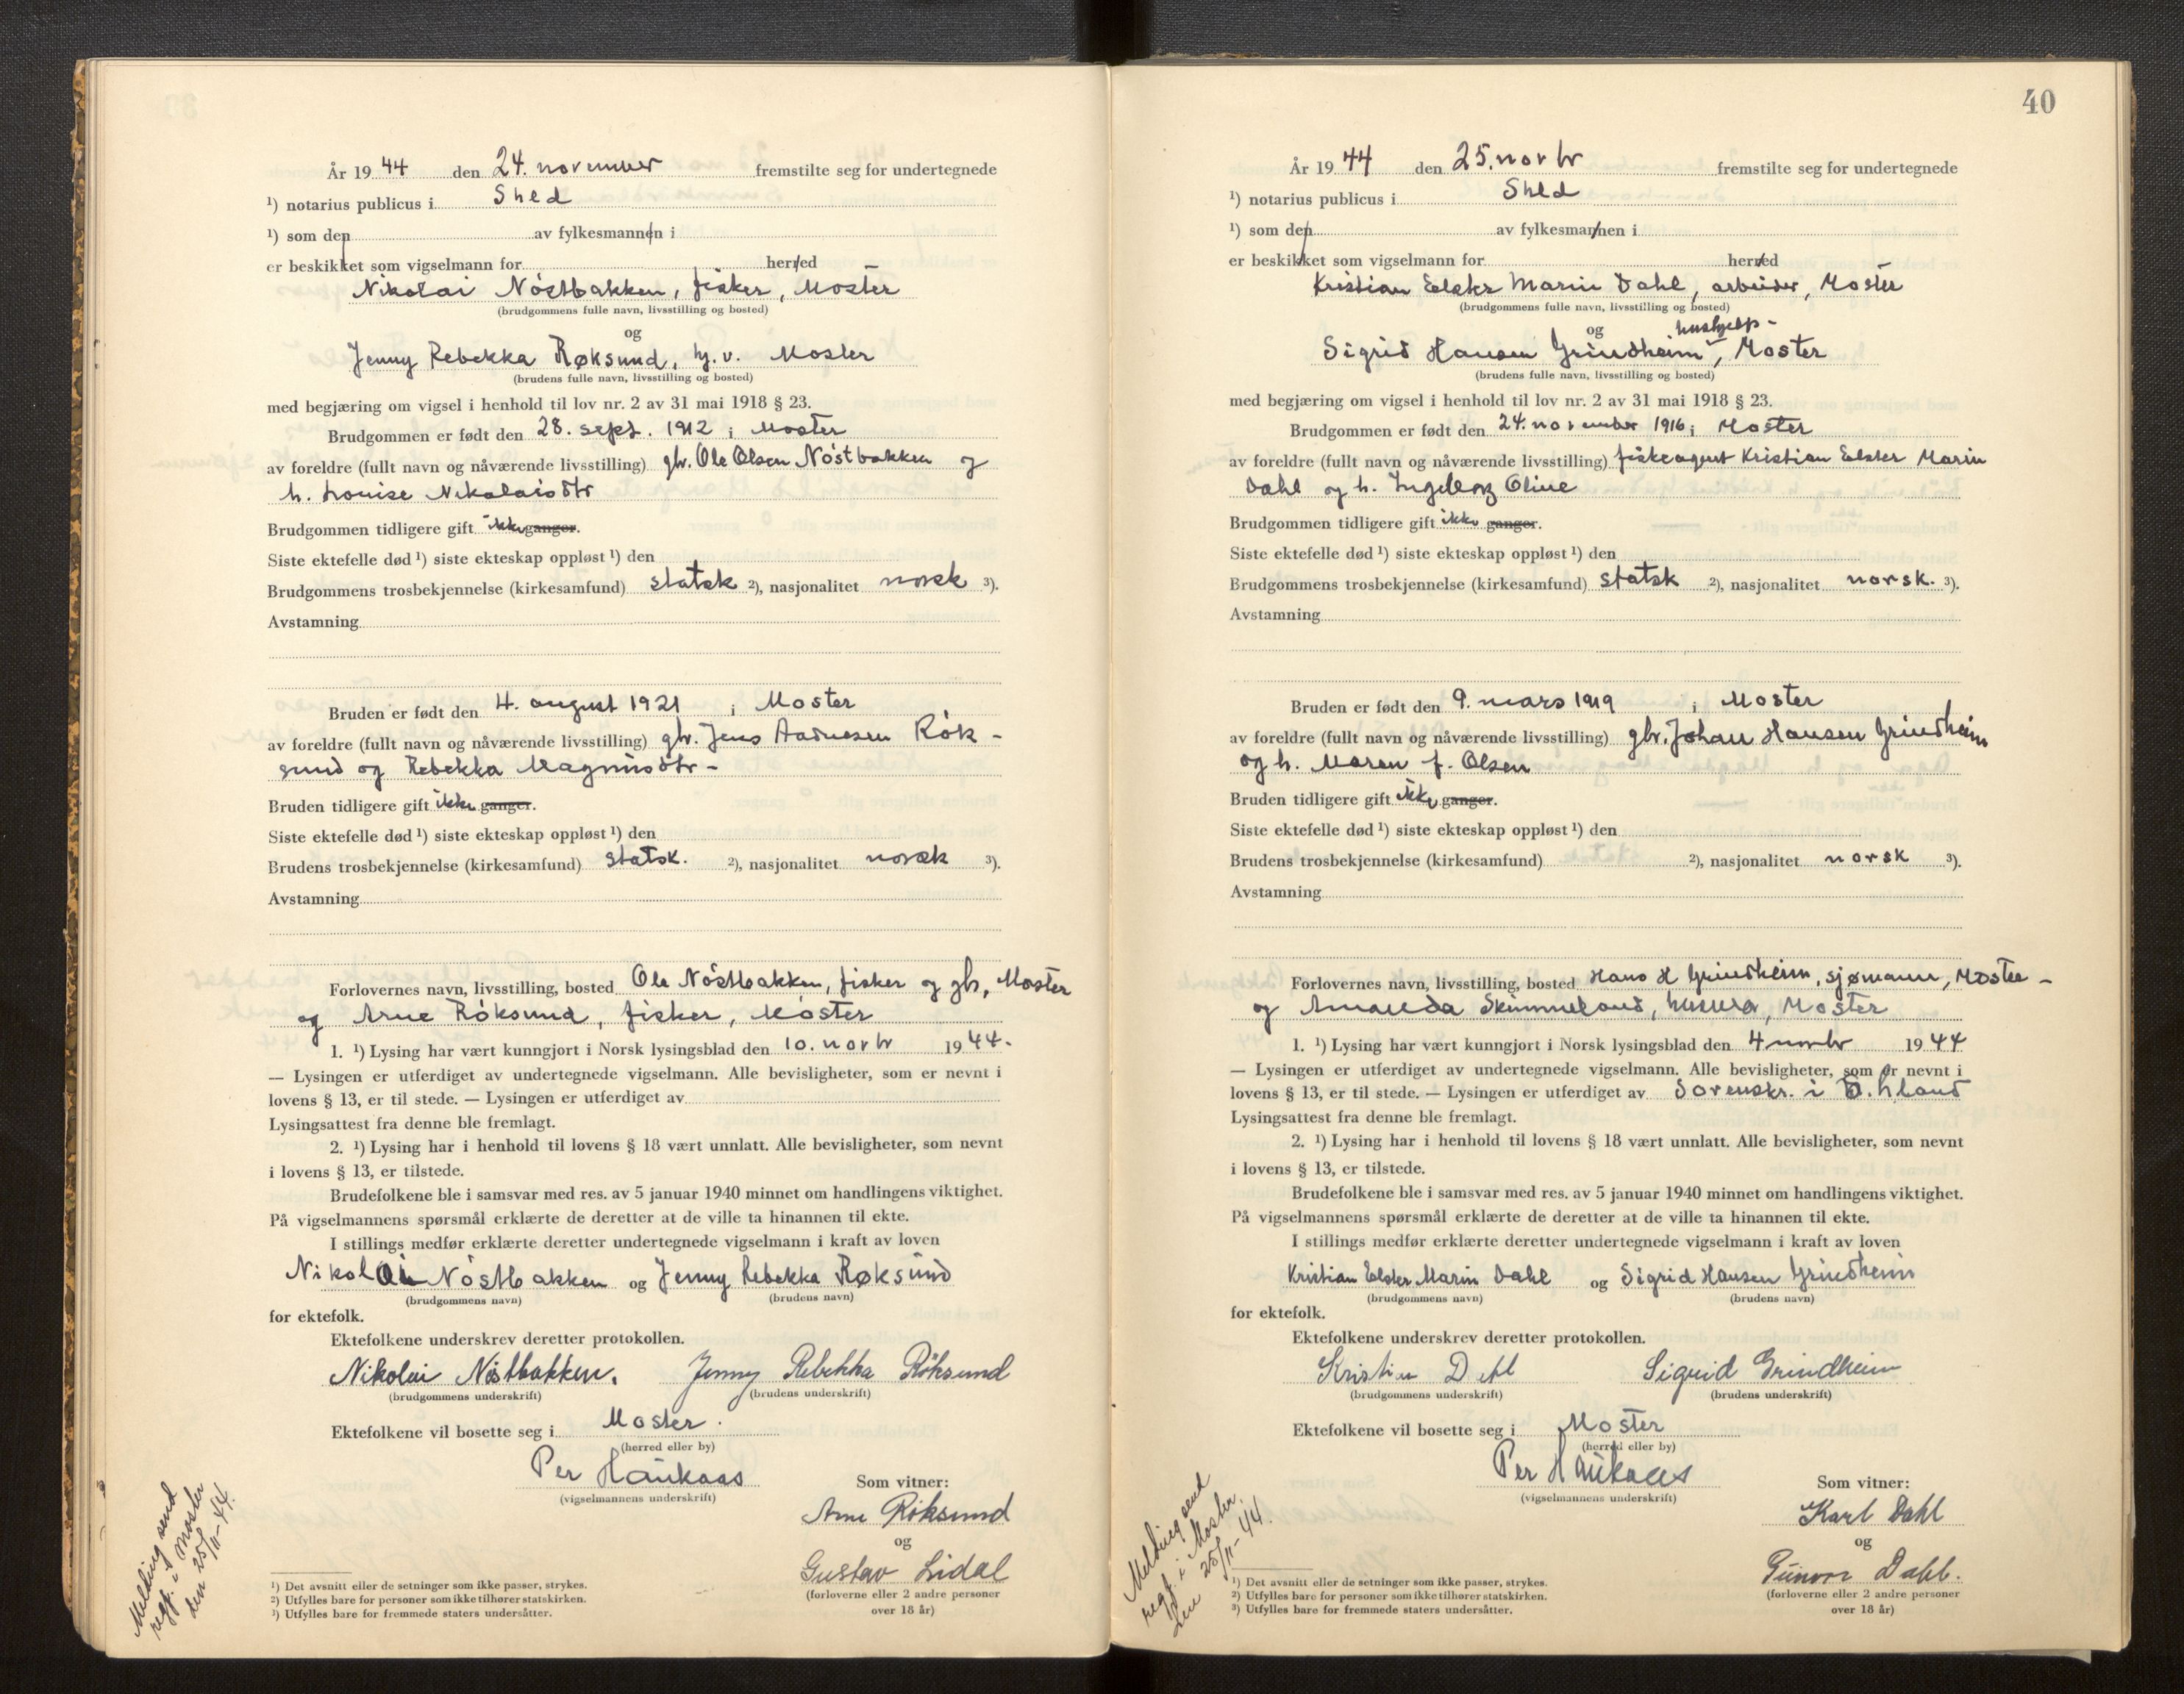 År 19 44 den 24. november fremstilte seg for undertegnede
¹) notarius publicus i Shld
¹) som den av fylkesmannen i
er beskikket som vigselmann for herred
Nikolai Nóstbakken, fisker, Moster
(brudgommens fulle navn, livsstilling og bosted)
og
Jenny Rebekka Røksund, hj. v. Moster
(brudens fulle navn, livsstilling og bosted)
med begjæring om vigsel i henhold til lov nr. 2 av 31 mai 1918 § 23.
Brudgommen er født den 28. sept. 1912 i Moster
av foreldre (fullt navn og nåværende livsstilling) gbr. Ole Olsen Nóstbakken og
h. Louise Nikolaisdtr
Brudgommen tidligere gift ikke ganger.
Siste ektefelle død ¹) siste ekteskap oppløst ¹) den
Brudgommens trosbekjennelse (kirkesamfund) statsk ²), nasjonalitet norsk ³).
Avstamning
Bruden er født den 4. august 1921 i Moster
av foreldre (fullt navn og nåværende livsstilling) gbr. Jens Aadnesen Rók-
sund og Rebekka Magnusdtr-
Bruden tidligere gift ikke ganger.
Siste ektefelle død ¹) siste ekteskap oppløst ¹) den
Brudens trosbekjennelse (kirkesamfund) statsk. ²), nasjonalitet norsk ³).
Avstamning
Forlovernes navn, livsstilling, bosted Ole Nóstbakken, fisker og gbr, Moster
og Arne Róksund, fisker, Moster
1. ¹) Lysing har vært kunngjort i Norsk lysingsblad den 10. novbr 19 44-
— Lysingen er utferdiget av undertegnede vigselmann. Alle bevisligheter, som er nevnt i
lovens § 13, er til stede. — Lysingen er utferdiget av
Lysingsattest fra denne ble fremlagt.
2. ¹) Lysing har i henhold til lovens § 18 vært unnlatt. Alle bevisligheter, som nevnt
i lovens § 13, er tilstede.
Brudefolkene ble i samsvar med res. av 5 januar 1940 minnet om handlingens viktighet.
På vigselmannens spørsmål erklærte de deretter at de ville ta hinannen til ekte.
I stillings medfør erklærte deretter undertegnede vigselmann i kraft av loven
Nikolai Nóstbakken og Jenny Rebekka Røksund
(brudgommens navn) (brudens navn)
for ektefolk.
Ektefolkene underskrev deretter protokollen.
Nikolai Nöstbakken. Jenny Rebekka Röksund
(brudgommens underskrift) (brudens underskrift)
Ektefolkene vil bosette seg i Moster.
(herred eller by)
Per Haukaas
(vigselmannens underskrift)
Som vitner:
Arne Röksund
og
Gustav Lidal
(forloverne eller 2 andre personer
over 18 år)
Melding send
regf. i Moster
den 25/11-44.
¹) Det avsnitt eller de setninger som ikke passer, strykes.
²) Utfylles bare for personer som ikke tilhører statskirken.
³) Utfylles bare for fremmede staters undersåtter.
40
År 19 44 den 25. novbr fremstilte seg for undertegnede
¹) notarius publicus i Shld
¹) som den av fylkesmannen i
er beskikket som vigselmann for herred
Kristian Elster Marin Dahl, arbeider, Moster
(brudgommens fulle navn, livsstilling og bosted)
og
hushjelp-
Sigrid Hansen Grindheim, Moster
(brudens fulle navn, livsstilling og bosted)
med begjæring om vigsel i henhold til lov nr. 2 av 31 mai 1918 § 23.
Brudgommen er født den 24. november 1916 i Moster
av foreldre (fullt navn og nåværende livsstilling) fiskeagent Kristian Elster Marin
Dahl og h. Ingeborg Oline
Brudgommen tidligere gift ikke ganger.
Siste ektefelle død ¹) siste ekteskap oppløst ¹) den
Brudgommens trosbekjennelse (kirkesamfund) statsk ²), nasjonalitet norsk. ³).
Avstamning
Bruden er født den 9. mars 1919 i Moster
av foreldre (fullt navn og nåværende livsstilling) gbr. Johan Hansen Grindheim
og h. Maren f. Olsen
Bruden tidligere gift ikke ganger.
Siste ektefelle død ¹) siste ekteskap oppløst ¹) den
Brudens trosbekjennelse (kirkesamfund) ²), nasjonalitet norsk ³).
Avstamning
Forlovernes navn, livsstilling, bosted Hans H Grindheim, sjømann, Moster-
og Amanda Skimmeland, Moster
1. ¹) Lysing har vært kunngjort i Norsk lysingsblad den 4 novbr 19 44
— Lysingen er utferdiget av undertegnede vigselmann. Alle bevisligheter, som er nevnt i
lovens § 13, er til stede. — Lysingen er utferdiget av Sorenskr. i S. hland
Lysingsattest fra denne ble fremlagt.
2. ¹) Lysing har i henhold til lovens § 18 vært unnlatt. Alle bevisligheter, som nevnt
i lovens § 13, er tilstede.
Brudefolkene ble i samsvar med res. av 5 januar 1940 minnet om handlingens viktighet.
På vigselmannens spørsmål erklærte de deretter at de ville ta hinannen til ekte.
I stillings medfør erklærte deretter undertegnede vigselmann i kraft av loven
Kristian Elster Marin Dahl og Sigrid Hansen Grindheim
(brudgommens navn) (brudens navn)
for ektefolk.
Ektefolkene underskrev deretter protokollen.
Kristian Dahl Sigrid Grindheim
(brudgommens underskrift) (brudens underskrift)
Ektefolkene vil bosette seg i Moster
(herred eller by)
Per Haukaas
(vigselmannens underskrift)
Som vitner:
Karl Dahl
og
Gunvor Dahl.
(forloverne eller 2 andre personer
over 18 år)
Melding send
regf. i Moster
den 25/11-44.
¹) Det avsnitt eller de setninger som ikke passer, strykes.
²) Utfylles bare for personer som ikke tilhører statskirken.
³) Utfylles bare for fremmede staters undersåtter.